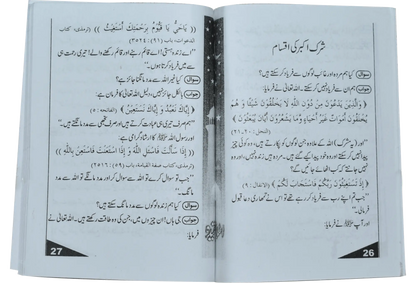 شرک اکبر کی اقسام
سوال کیا ہم مردہ اور غائب لوگوں سے فریاد کر سکتے ہیں؟
جواب ہم ان سے فریاد نہیں کر سکتے۔ اللہ تعالیٰ نے فرمایا:
﴿ وَالَّذِينَ يَدْعُونَ مِنْ دُونِ اللَّهِ لَا يَخْلُقُونَ شَيْئًا وَّ هُمْ
يُخْلَقُونَ أَمْوَاتٌ غَيْرُ أَحْيَاءٍ وَمَا يَشْعُرُونَ أَيَّانَ يُبْعَثُونَ ﴾
(النحل: ٢٠، ٢١)
اور (یہ مشرک) اللہ کے علاوہ جن لوگوں کو پکارتے ہیں، وہ کوئی چیز
پیدا نہیں کر سکتے اور وہ خود پیدا کیے گئے ہیں۔ مردہ ہیں زندہ نہیں، اور وہ نہیں
جانتے کہ کب اٹھائے جائیں گے؟
﴿ إِذْ تَسْتَغِيثُونَ رَبَّكُمْ فَاسْتَجَابَ لَكُمْ ﴾ (الانفال: ٩)
جب تم اپنے رب سے فریاد کر رہے تھے تو اس نے تمھاری دعا قبول
فرمائی۔
اور آپ ﷺ نے فرمایا:
26
(( يَا حَيُّ يَا قَيُّومُ بِرَحْمَتِكَ أَسْتَغِيثُ )) (ترمذی، کتاب
الدعوات، باب (٩١): ٣٥٢٤)
"اے زندہ ہستی! اے قائم رہنے اور قائم رکھنے والے! تیری رحمت ہی
سے میں فریاد کرتا ہوں۔"
سوال کیا غیر اللہ سے مدد مانگنا جائز ہے؟
جواب بالکل جائز نہیں، دلیل اللہ تعالیٰ کا فرمان ہے:
﴿ إِيَّاكَ نَعْبُدُ وَ إِيَّاكَ نَسْتَعِينُ ﴾ (الفاتحة: ٥)
"ہم صرف تیری ہی عبادت کرتے ہیں اور صرف تجھی سے مدد مانگتے ہیں۔"
اور رسول اللہ ﷺ کا ارشاد گرامی ہے:
(( إِذَا سَأَلْتَ فَاسْأَلِ اللَّهَ وَ إِذَا اسْتَعَنْتَ فَاسْتَعِنْ بِاللَّهِ ))
(ترمذی، کتاب صفة القيامة، باب (٥٩): ٢٥١٦)
"جب تو سوال کرے تو اللہ سے سوال کر اور مدد مانگے تو اللہ سے مدد
مانگ۔"
سوال کیا ہم زندہ لوگوں سے مدد مانگ سکتے ہیں؟
جواب جی ہاں! ان چیزوں میں، جن کی وہ طاقت رکھتے ہیں۔ اللہ تعالیٰ نے
فرمایا:
27